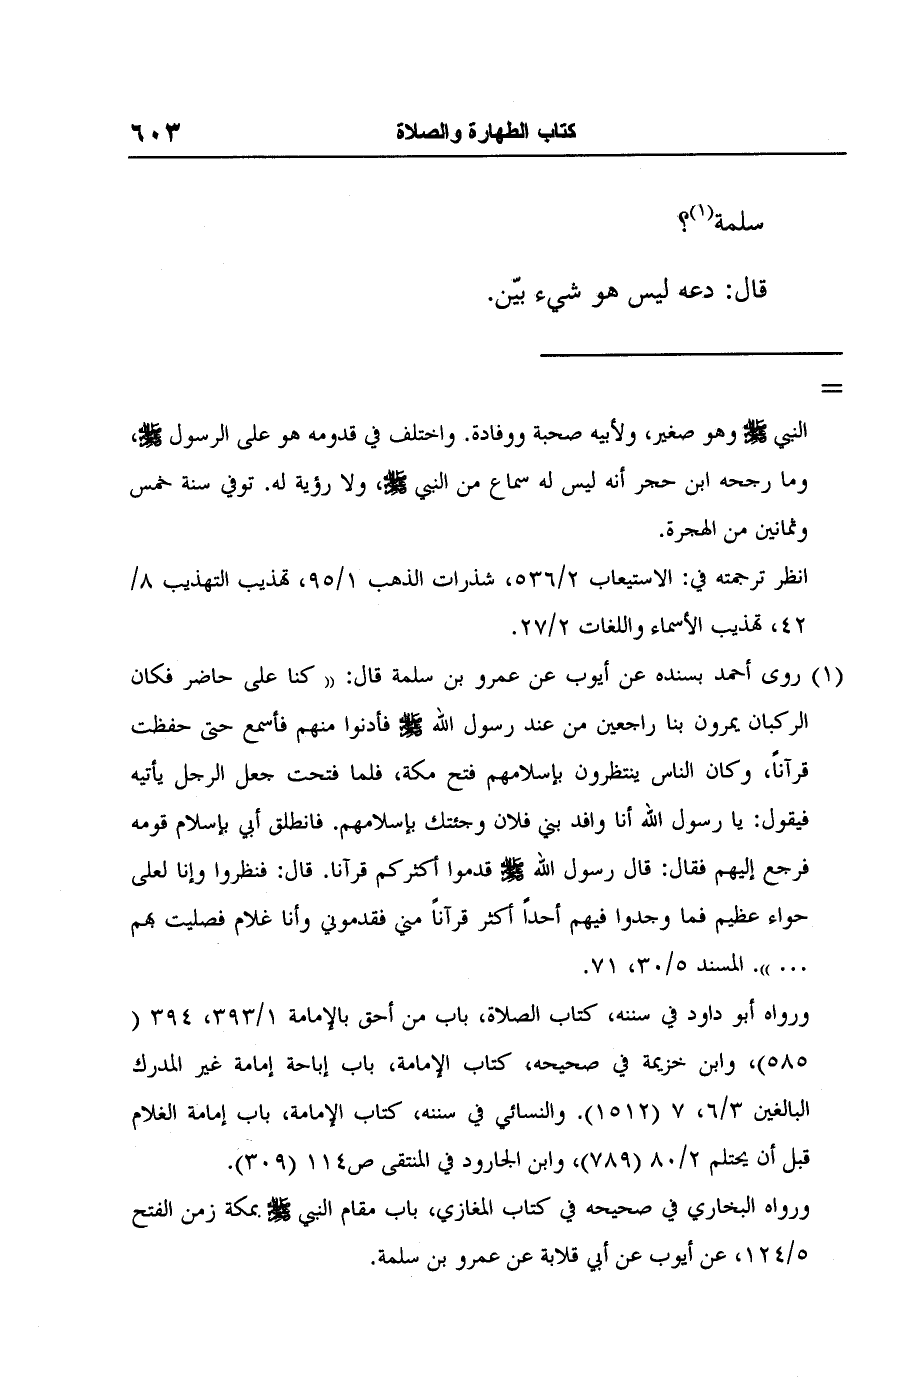 كتاب الطهارة والصلاة ٦٠٣
سلمة(١)؟
قال: دعه ليس هو شيء بيّن.
=
النبي ﷺ وهو صغير، ولأبيه صحبة ووفادة. واختلف في قدومه هو على الرسول ﷺ،
وما رجحه ابن حجر أنه ليس له سماع من النبي ﷺ، ولا رؤية له. توفي سنة خمس
وثمانين من الهجرة.
انظر ترجمته في: الاستيعاب ٥٣٦/٢، شذرات الذهب ٩٥/١، تهذيب التهذيب ٨/
٤٢، تهذيب الأسماء واللغات ٢٧/٢.
(١) روى أحمد بسنده عن أيوب عن عمرو بن سلمة قال: (( كنا على حاضر فكان
الركبان يمرون بنا راجعين من عند رسول الله ﷺ فأدنوا منهم فأسمع حتى حفظت
قرآناً، وكان الناس ينتظرون بإسلامهم فتح مكة، فلما فتحت جعل الرجل يأتيه
فيقول: يا رسول الله أنا وافد بني فلان وجئتك بإسلامهم. فانطلق أبي بإسلام قومه
فرجع إليهم فقال: قال رسول الله ﷺ قدموا أكثركم قرآنا. قال: فنظروا وإنا لعلى
حواء عظيم فما وجدوا فيهم أحداً أكثر قرآناً مني فقدموني وأنا غلام فصليت بهم
... )). المسند ٣٠/٥، ٧١.
ورواه أبو داود في سننه، كتاب الصلاة، باب من أحق بالإمامة ٣٩٣/١، ٣٩٤ (
٥٨٥)، وابن خزيمة في صحيحه، كتاب الإمامة، باب إباحة إمامة غير المدرك
البالغين ٦/٣، ٧ (١٥١٢). والنسائي في سننه، كتاب الإمامة، باب إمامة الغلام
قبل أن يحتلم ٨٠/٢ (٧٨٩)، وابن الجارود في المنتقى ص١١٤ (٣٠٩).
ورواه البخاري في صحيحه في كتاب المغازي، باب مقام النبي ﷺ بمكة زمن الفتح
١٢٤/٥، عن أيوب عن أبي قلابة عن عمرو بن سلمة.